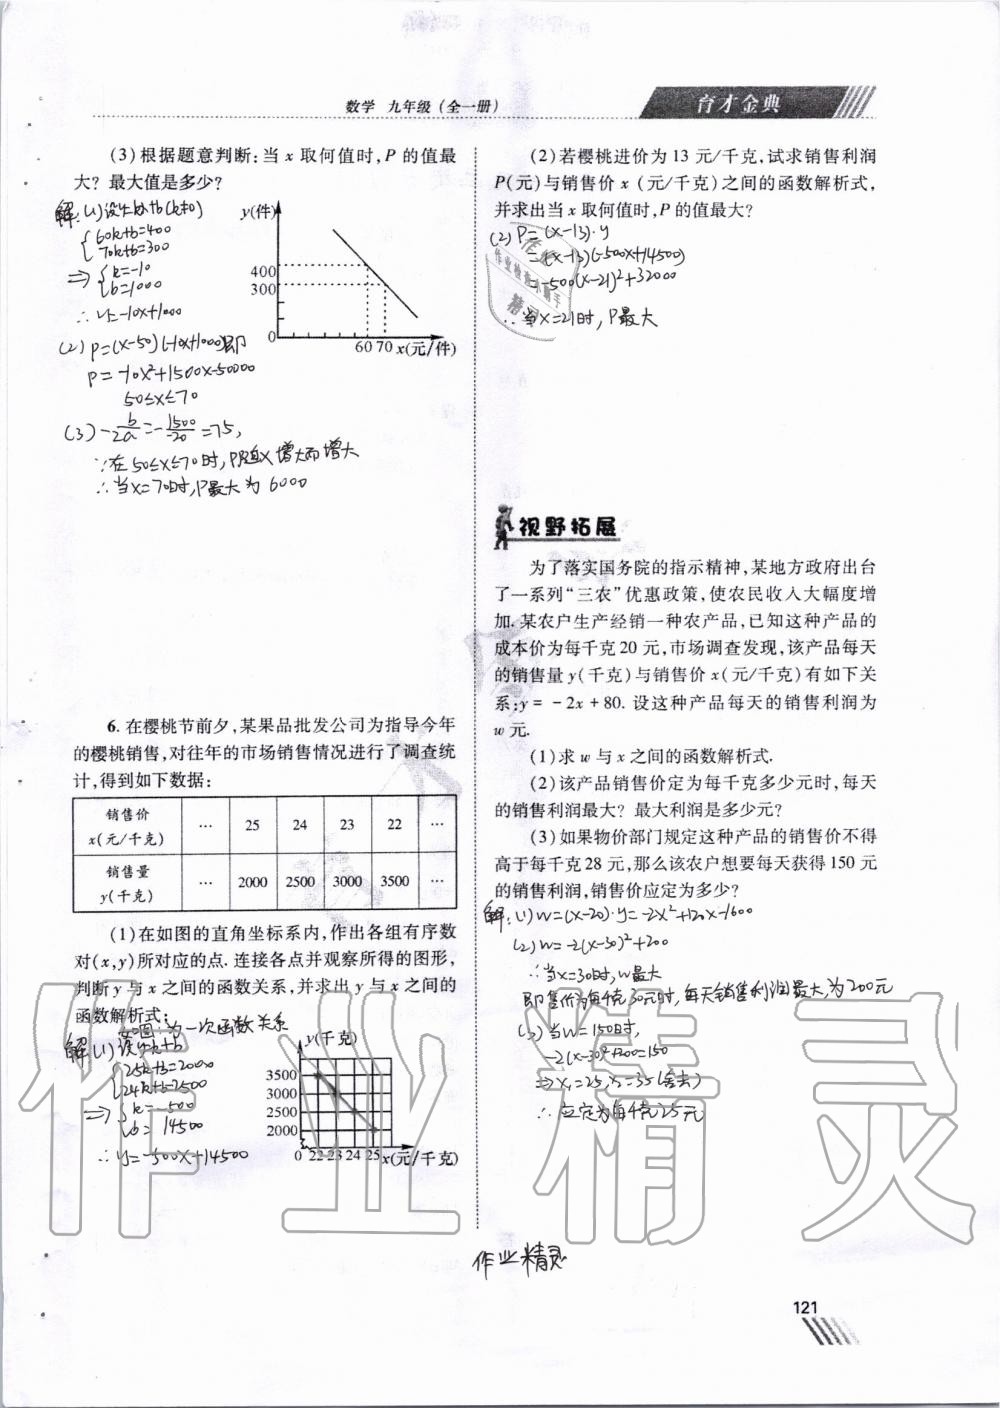 数学 九年级(全一册)
育才金典
(3)根据题意判断:当 x 取何值时,P 的值最
大? 最大值是多少?
解:(1)设y=kx+b(k≠0)
60k+b=400
70k+b=300
⇒ k=-10
b=1000
∴y=-10x+1000
(2) P=(x-50)(-10x+1000)即
P=-10x²+1500x-50000
50≤x≤70
(3) -b/2a=-1500/-20=75,
∵在50≤x≤70时,P随x增大而增大
∴当x=70时,P最大为6000
y(件)
400
300
0
60 70 x(元/件)
6. 在樱桃节前夕,某果品批发公司为指导今年
的樱桃销售,对往年的市场销售情况进行了调查统
计,得到如下数据:
销售价
x(元/千克) … 25 24 23 22 …
销售量
y(千克) … 2000 2500 3000 3500 …
(1)在如图的直角坐标系内,作出各组有序数
对(x,y)所对应的点. 连接各点并观察所得的图形,
判断 y 与 x 之间的函数关系,并求出 y 与 x 之间的
函数解析式;
如图 为一次函数关系
解(1)设y=kx+b
25k+b=2000
24k+b=2500
⇒ k=-500
b=14500
∴y=-500x+14500
y(千克)
3500
3000
2500
2000
0 22 23 24 25 x(元/千克)
(2)若樱桃进价为 13 元/千克,试求销售利润
P(元)与销售价 x (元/千克)之间的函数解析式,
并求出当 x 取何值时,P 的值最大?
(2) P=(x-13)·y
=(x-13)(-500x+14500)
=-500(x-21)²+32000
∴当x=21时,P最大
视野拓展
为了落实国务院的指示精神,某地方政府出台
了一系列“三农”优惠政策,使农民收入大幅度增
加. 某农户生产经销一种农产品,已知这种产品的
成本价为每千克 20 元,市场调查发现,该产品每天
的销售量 y(千克)与销售价 x(元/千克)有如下关
系:y = -2x+80. 设这种产品每天的销售利润为
w 元.
(1)求 w 与 x 之间的函数解析式.
(2)该产品销售价定为每千克多少元时,每天
的销售利润最大? 最大利润是多少元?
(3)如果物价部门规定这种产品的销售价不得
高于每千克 28 元,那么该农户想要每天获得 150 元
的销售利润,销售价应定为多少?
解:(1)w=(x-20)·y=-2x²+120x-1600
(2)w=-2(x-30)²+200
∴当x=30时,w最大
即售价为每千克30元时,每天销售利润最大,为200元
(3)当w=150时,
-2(x-30)²+200=150
⇒x₁=25,x₂=35(舍去)
∴应定为每千克25元
作业精灵
作业精灵
121